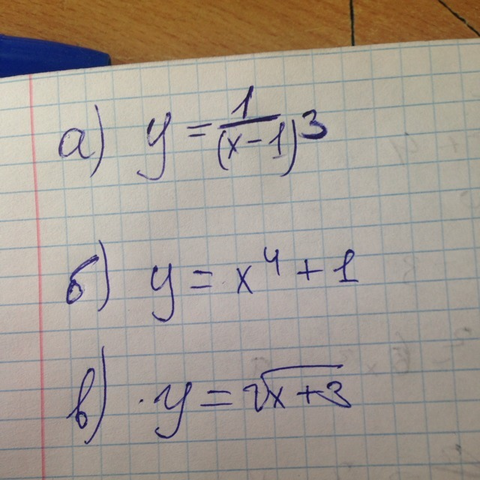 а) y = 1/(x-1)³
б) y = x⁴ + 1
в) y = √x+3